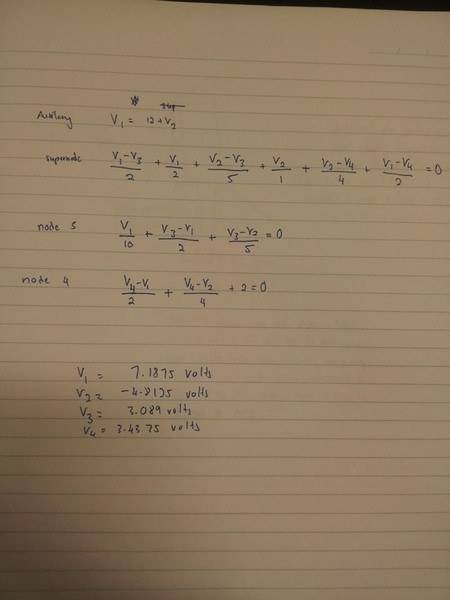 Auxilary V₁ = 12 + V₂
supernode (V₁-V₃)/2 + V₁/2 + (V₂-V₃)/5 + V₂/1 + (V₂-V₄)/4 + (V₁-V₄)/2 = 0
node 3 V₁/10 + (V₃-V₁)/2 + (V₃-V₂)/5 = 0
node 4 (V₄-V₁)/2 + (V₄-V₂)/4 + 2 = 0
V₁ = 7.1875 volts
V₂ = -4.8125 volts
V₃ = 3.089 volts
V₄ = 3.4375 volts